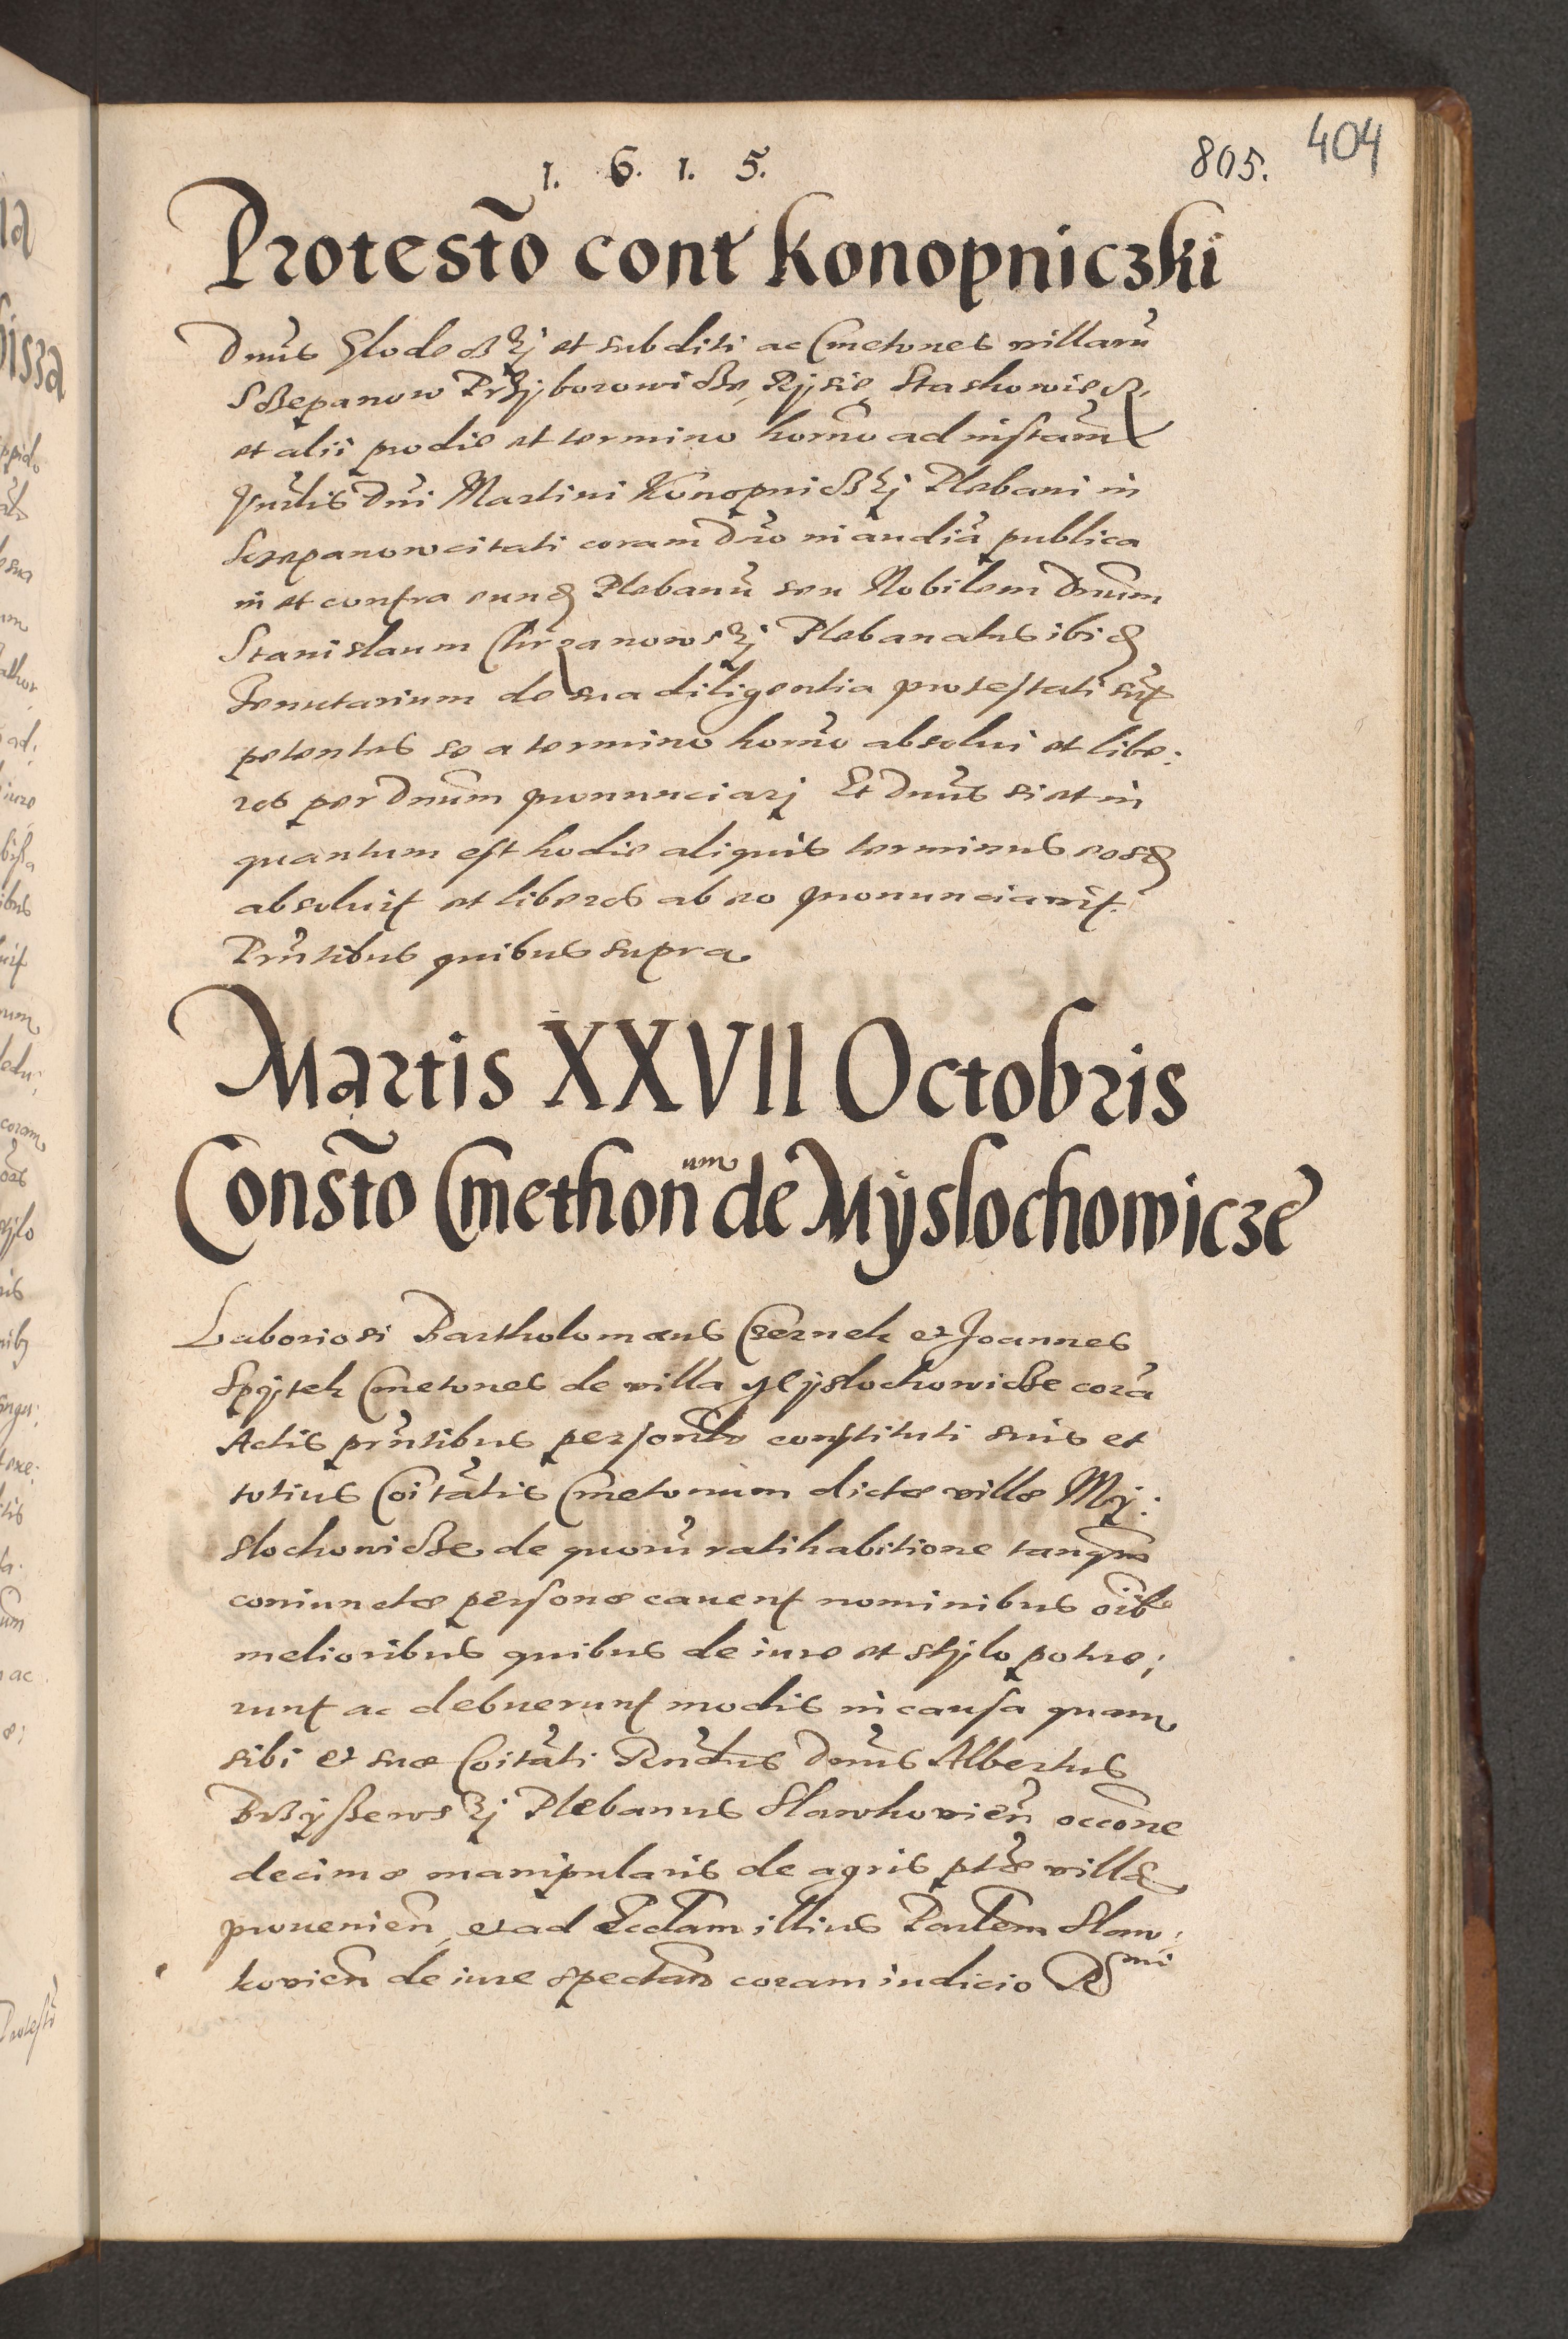 1. 6. 1. 5.
805. 404
Protestõ cont Konopniczki
Dnus et subditi ac Cmetones villarũ
Sczepanow Przyborowicze, Rysie, Staskowicze,
et alii pro die et termino horno ad instam
Vnrlis Dni Martini Konopniczkj Plebani in
Sczepanow citati coram Dno in audia publica
in et contra eund Plebanũ seu Nobilem Dnum
Stanislaum Chrzanowskj Plebanatus ibid
Tenutarium de sua diligentia protestati sunt
petentes se a termino horno absolui et libe:
ros per Dnum pronunciarj Et Dnus si et in
quantum est hodie aliquis terminus eosd
absoluit et liberos ab eo pronunciauit.
Prntibus quibus supra
Martis XXVII Octobris
Constõ Cmethonum de Myslochowicze
Laboriosi Bartholomæus Czernek et Joannes
Spytek Cmetones de villa Myslochowicze corã
Actis prntibus personlr constituti suis et
totius Coitatis Cmetonum dictæ villæ My:
slochowicze de quorũ ratihabitione tanqm
coniunctæ personæ cauent nominibus oib
melioribus quibus de iure et stylo potue;
runt ac debuerunt modis in causa quam
sibi et suæ Coitati Rndus Dnus Albertus
Plebanus Slawkovien occone
decimæ manipularis de agris ptæ villæ
prouenien et ad Ecclam illius Parlem Slaw:
kovien de iure spectan coram iudicio Rsmi